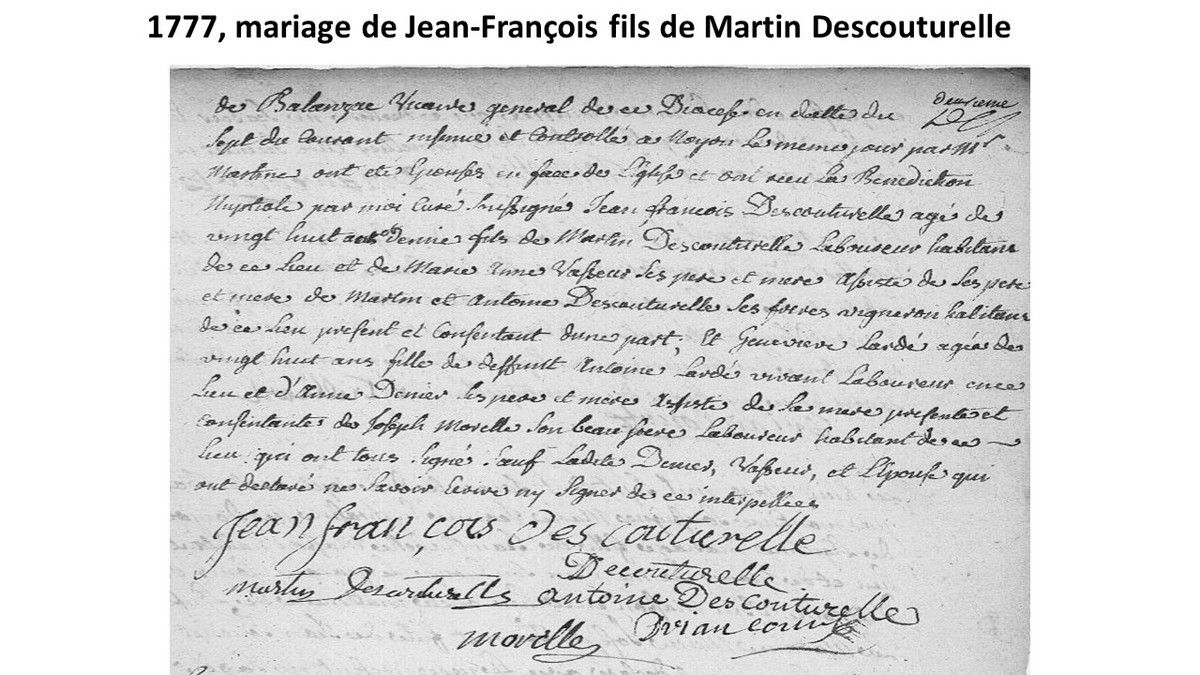 1777, mariage de Jean-François fils de Martin Descouturelle
de Balanzac Vicaire general de ce Diocese en datte du
deuxieme
sept du courant insinué et Controllé a Noyon le meme jour par Mr
Martine ont eté Epousés en face de L'Eglise et ont recu la Benediction
Nuptiale par moi Curé Soussigné Jean francois Descouturelle agé de
vingt huit ans demie fils de Martin Descouturelle Laboureur habitant
de ce Lieu et de Marie Anne Vasseur ses pere et mere Assisté de ses pere
et mere de Martin et Antoine Descouturelle ses freres vigneron habitans
de ce Lieu present et Consentant dune part, Et Genevieve Lardé agée de
vingt huit ans fille de deffunt Antoine Lardé vivant Laboureur en ce
Lieu et d'Anne Denier ses pere et mere Assisté de sa mere presente et
Consentante de Joseph Morelle son beau frere Laboureur habitant de ce
Lieu qui ont tous signé sauf Ladite Denier, Vasseur, et L'Epouse qui
ont declaré ne savoir Ecrire ny signer de ce interpellees
Jean françois Descouturelle
Decouturelle
martin Descouturelle antoine Descouturelle
morelle